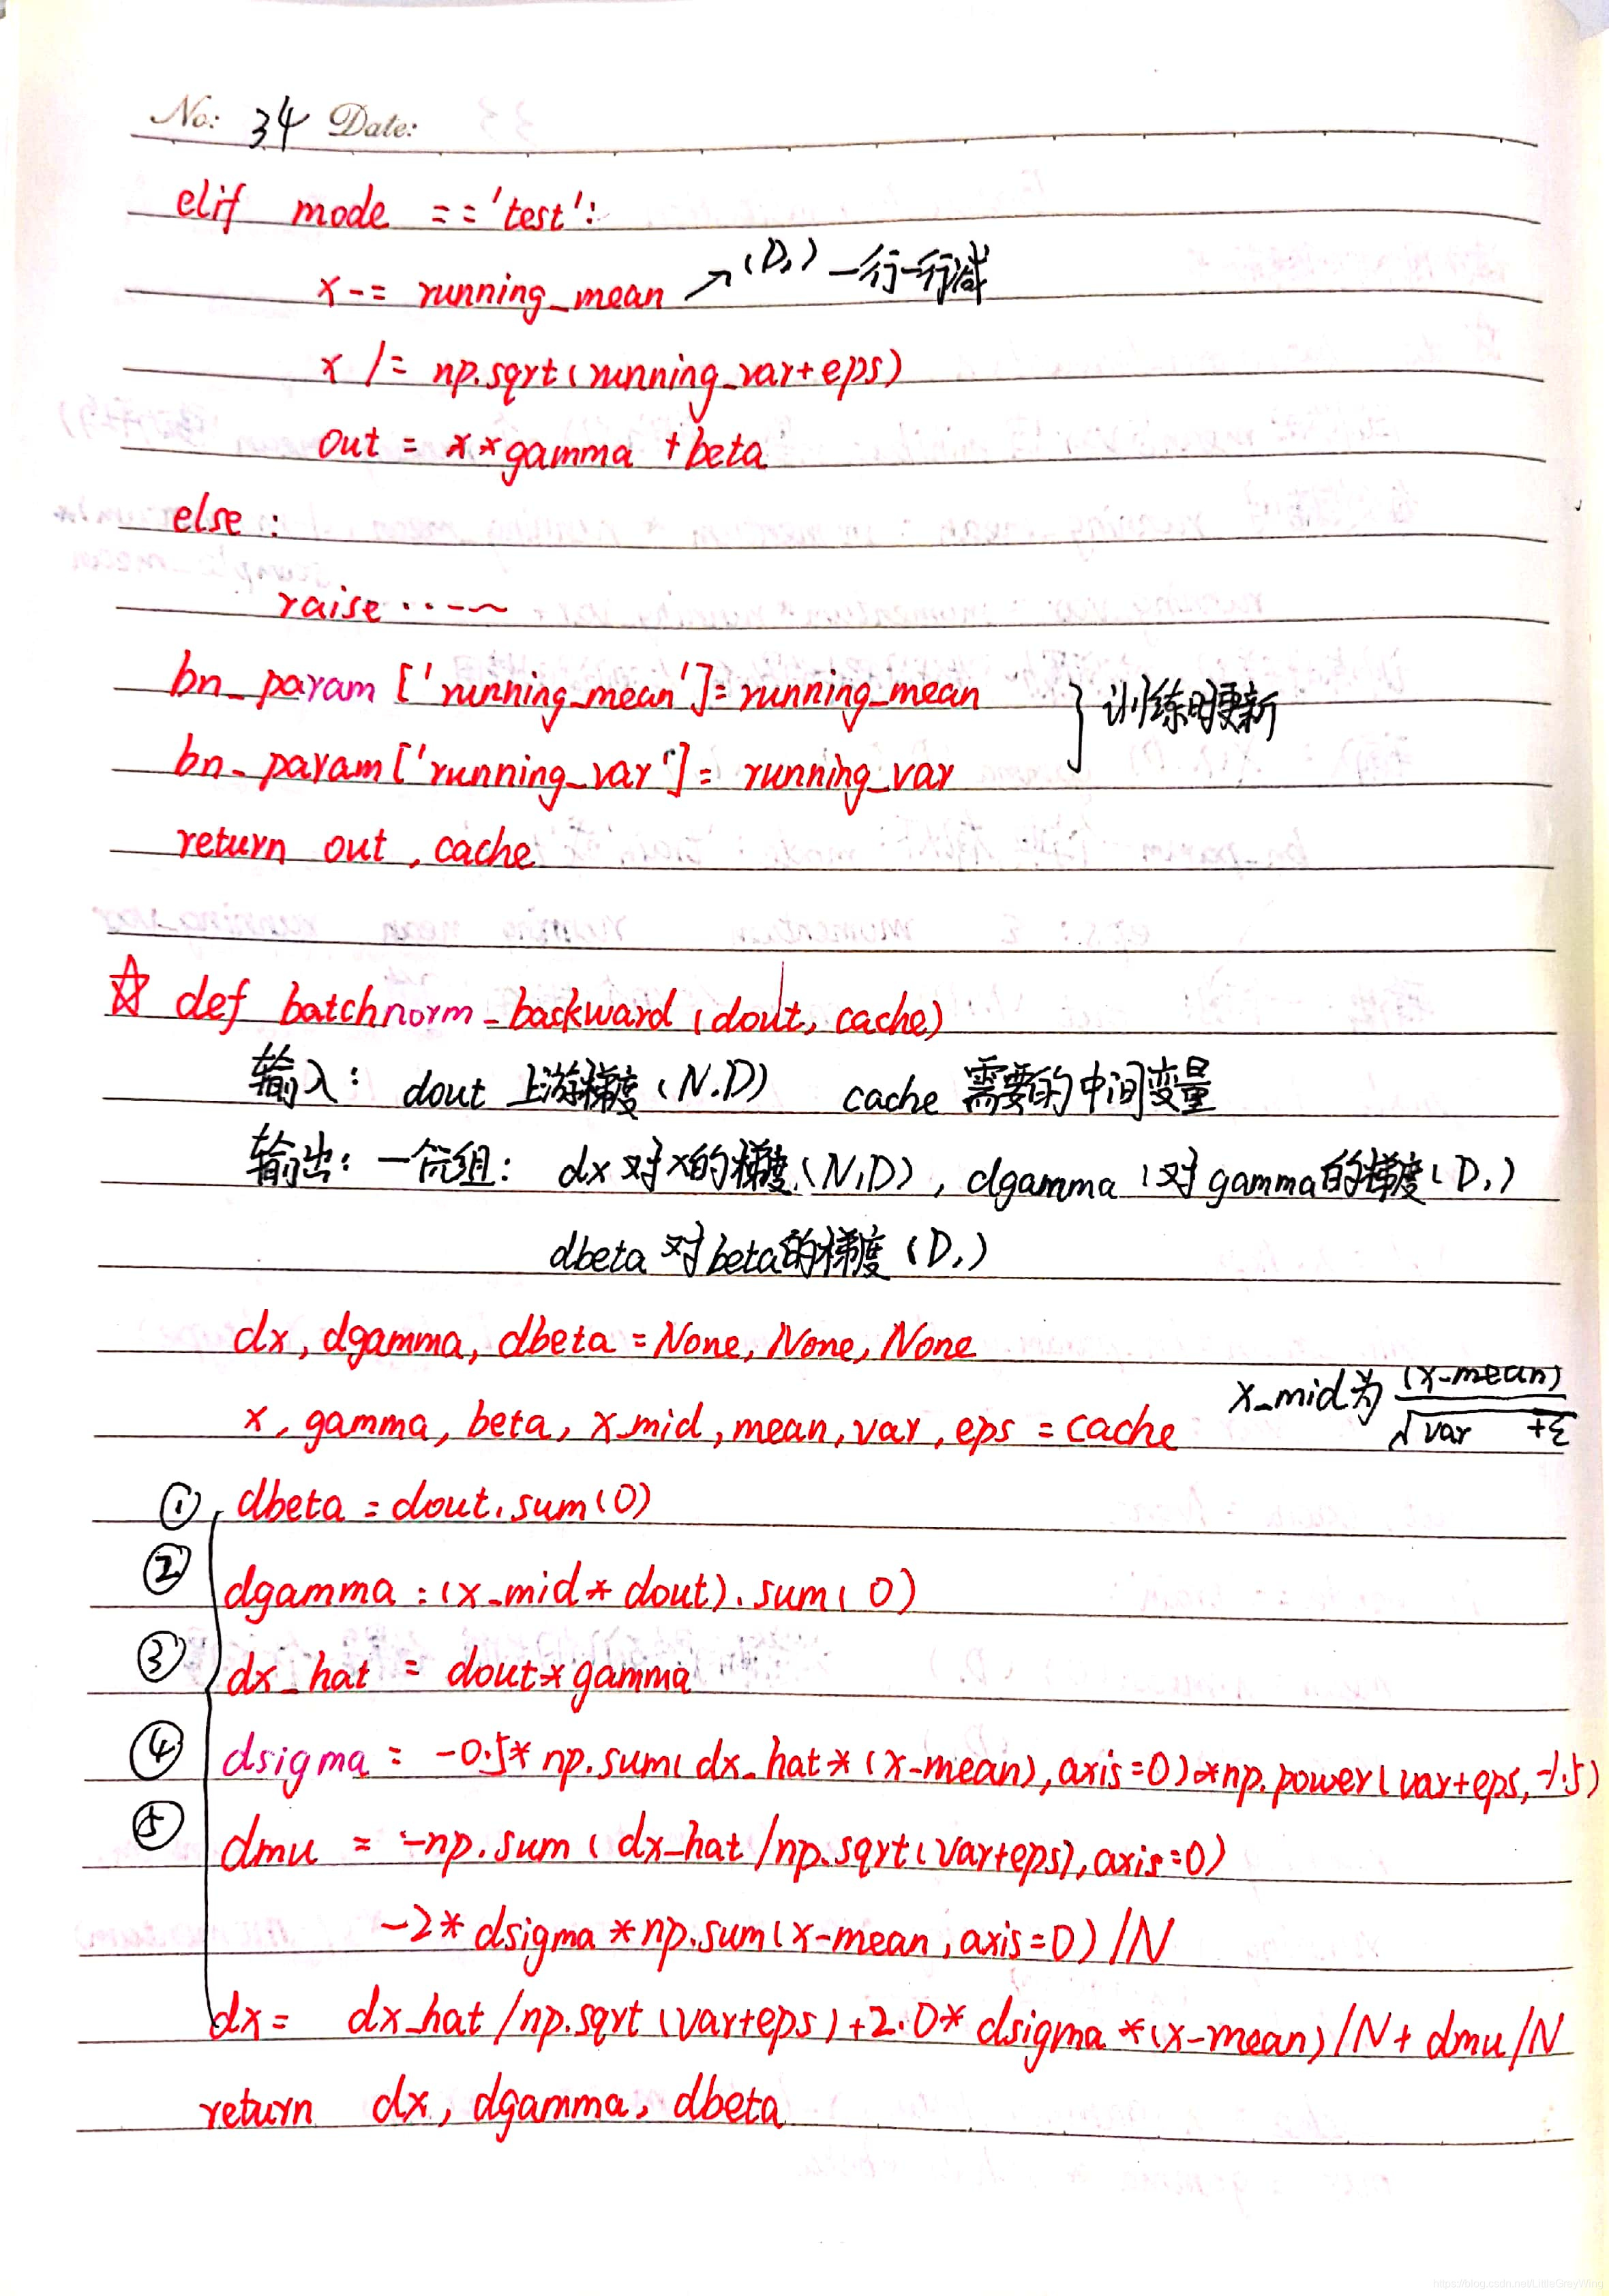 No: 34 Date:
elif mode == 'test':
x -= running_mean ↗ (D,) 一行一行减
x /= np.sqrt(running_var+eps)
out = x*gamma + beta
else:
raise ·····
bn_param ['running_mean'] = running_mean
bn_param ['running_var'] = running_var
} 训练时更新
return out, cache
☆ def batchnorm_backward (dout, cache)
输入: dout 上游梯度 (N.D) cache 需要的中间变量
输出: 一个元组: dx 对x的梯度 (N,D), dgamma (对gamma的梯度 (D,)
dbeta 对beta的梯度 (D,)
dx, dgamma, dbeta = None, None, None
x, gamma, beta, x_mid, mean, var, eps = cache x_mid为 (x-mean) / √var +ε
① dbeta = dout.sum(0)
② dgamma = (x_mid * dout).sum(0)
③ dx_hat = dout*gamma
④ dsigma = -0.5* np.sum(dx_hat*(x-mean), axis=0)*np.power(var+eps, -1.5)
⑤ dmu = -np.sum (dx_hat /np.sqrt(var+eps), axis=0)
-2* dsigma * np.sum(x-mean, axis=0) /N
dx = dx_hat /np.sqrt (var+eps) + 2.0* dsigma *(x-mean) /N + dmu /N
return dx, dgamma, dbeta
https://blog.csdn.net/LittleGreyWing